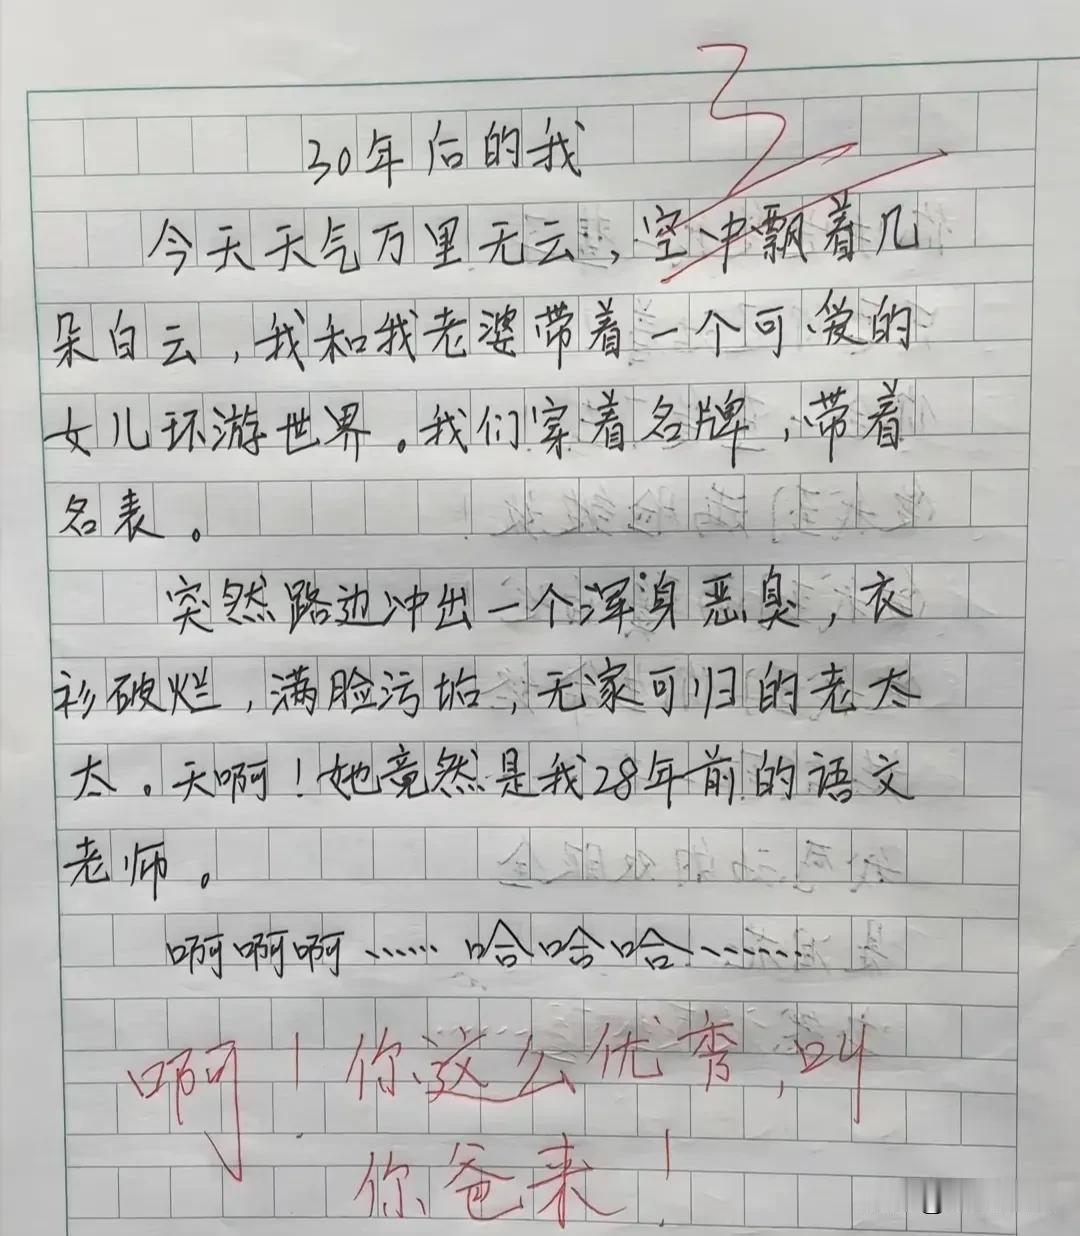 30年后的我
今天天气万里无云，空中飘着几
朵白云，我和我老婆带着一个可爱的
女儿环游世界。我们穿着名牌，带着
名表。
突然路边冲出一个浑身恶臭，衣
衫破烂，满脸污垢，无家可归的老太
太。天啊！她竟然是我28年前的语文
老师。
啊啊啊…… 哈哈哈……
啊！你这么优秀，叫
你爸来！